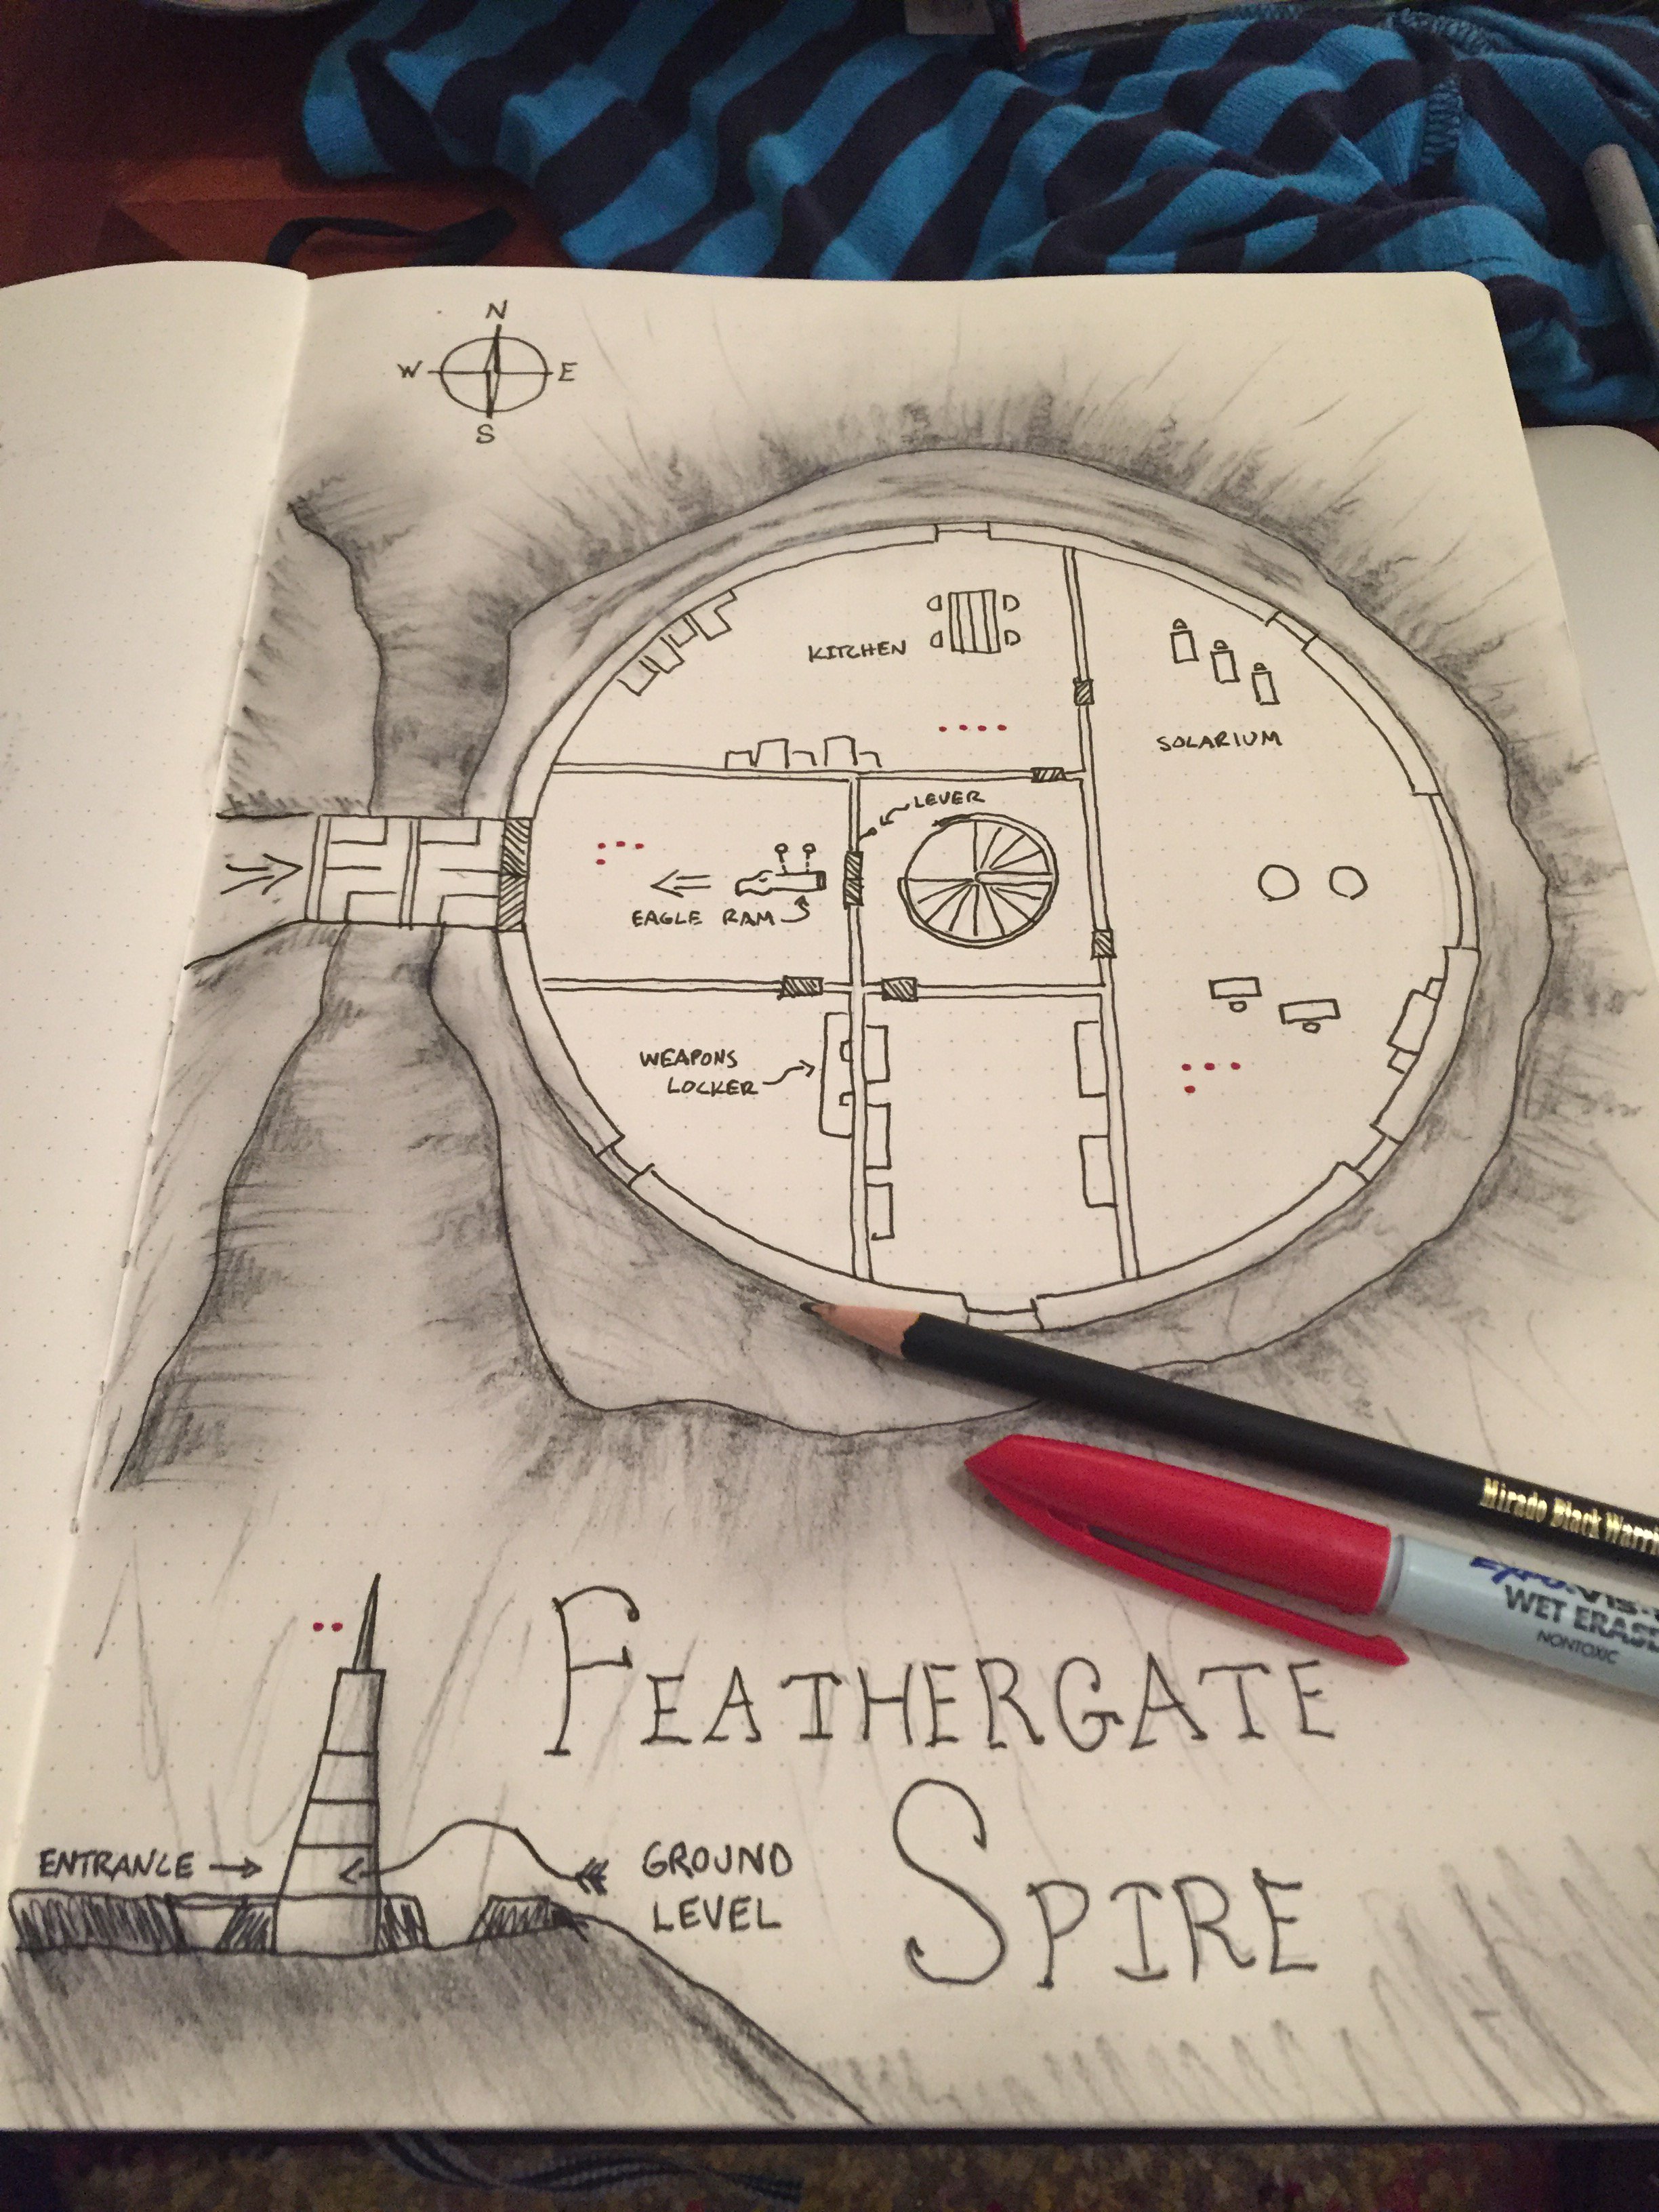 N
W E
S
KITCHEN
SOLARIUM
LEVER
EAGLE RAM
WEAPONS
LOCKER
Mirado Black
WET ERASE
NONTOXIC
FEATHERGATE
SPIRE
ENTRANCE
GROUND
LEVEL